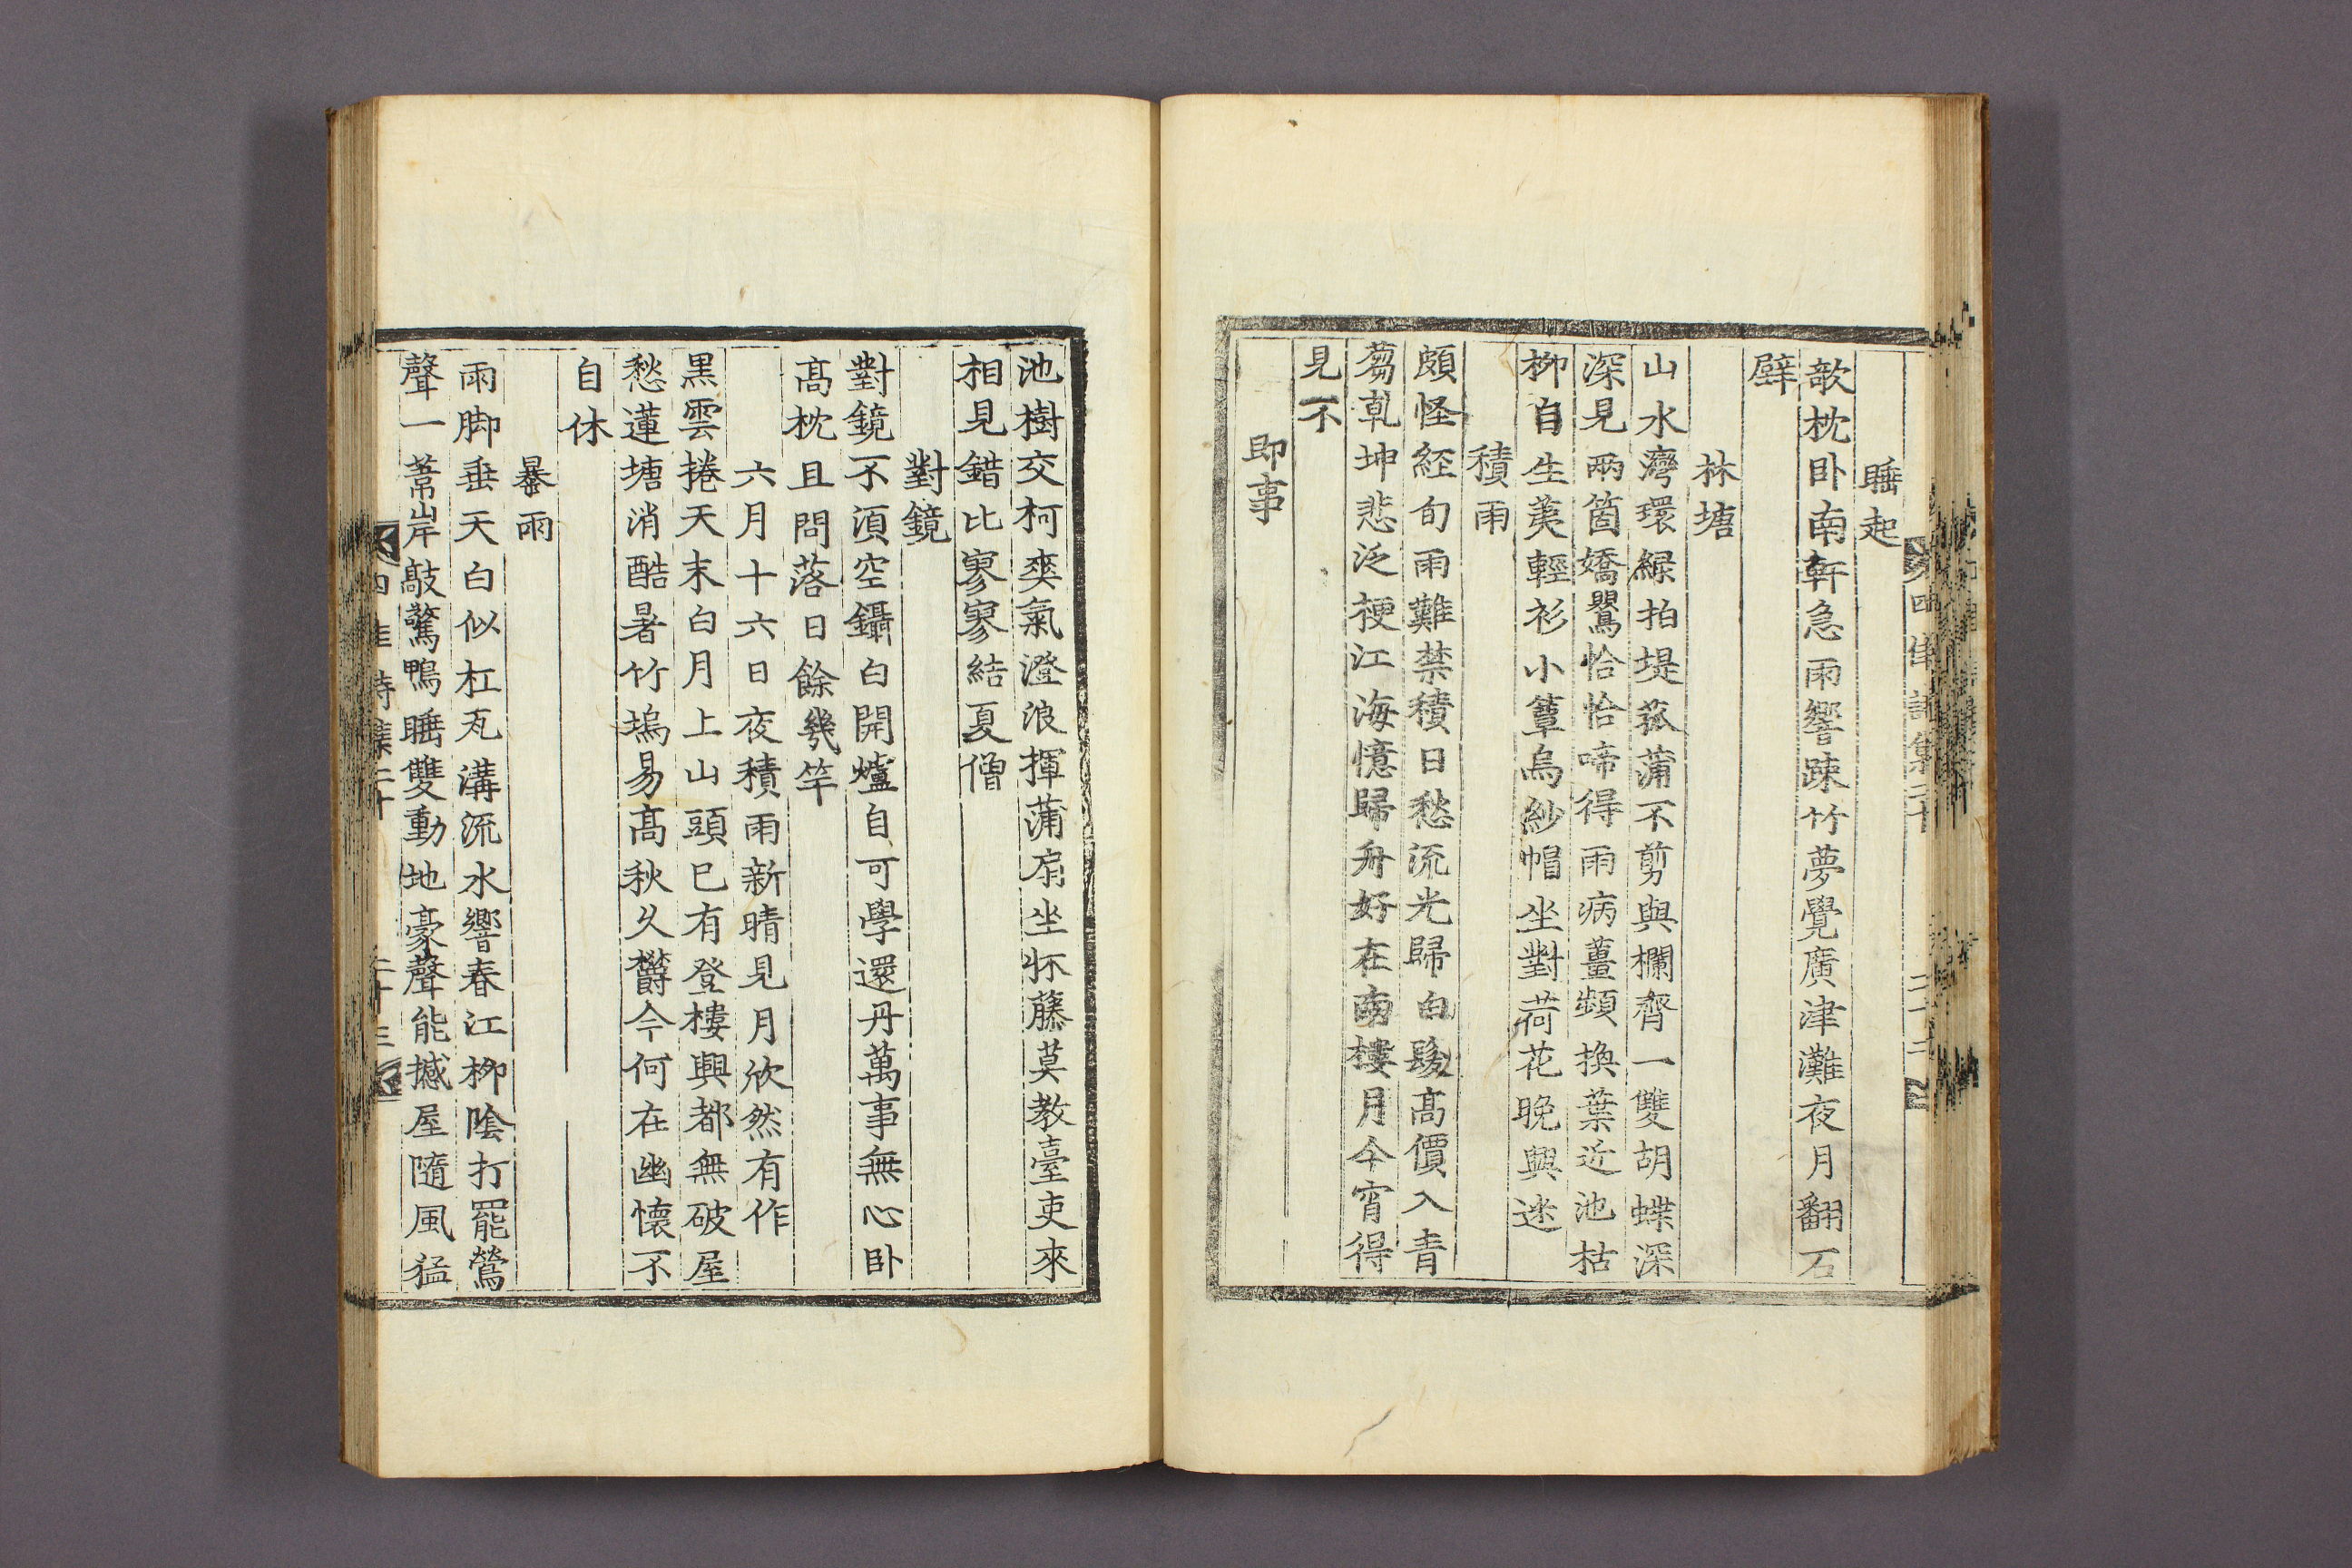 睡起
欹枕卧南軒急雨響踈竹夢覺廣津灘夜月翻石
壁
林塘
山水灣環緑拍堤菰蒲不剪與欄齊一雙胡蝶深
深見兩箇嬌鸎恰恰啼得雨病薑頻換葉近池枯
柳自生荑輕衫小簟烏紗帽坐對荷花晚興迷
積雨
頗怪経旬雨難禁積日愁流光歸白髮高價入青
蒭乹坤悲泛梗江海憶歸舟好在南樓月今宵得
見不
即事
池樹交柯爽氣澄浪揮蒲扇坐怀藤莫教臺吏來
相見錯比寥寥結夏僧
對鏡
對鏡不湏空鑷白開爐自可學還丹萬事無心卧
髙枕且問落日餘幾竿
六月十六日夜積雨新晴見月欣然有作
黒雲捲天末白月上山頭已有登樓興都無破屋
愁蓮塘消酷暑竹塢易髙秋久欝今何在幽懷不
自休
暴雨
雨脚垂天白似杠瓦溝流水響春江柳陰打罷鶯
聲一葦岸敲驚鴨睡雙動地豪聲能撼屋隨風猛